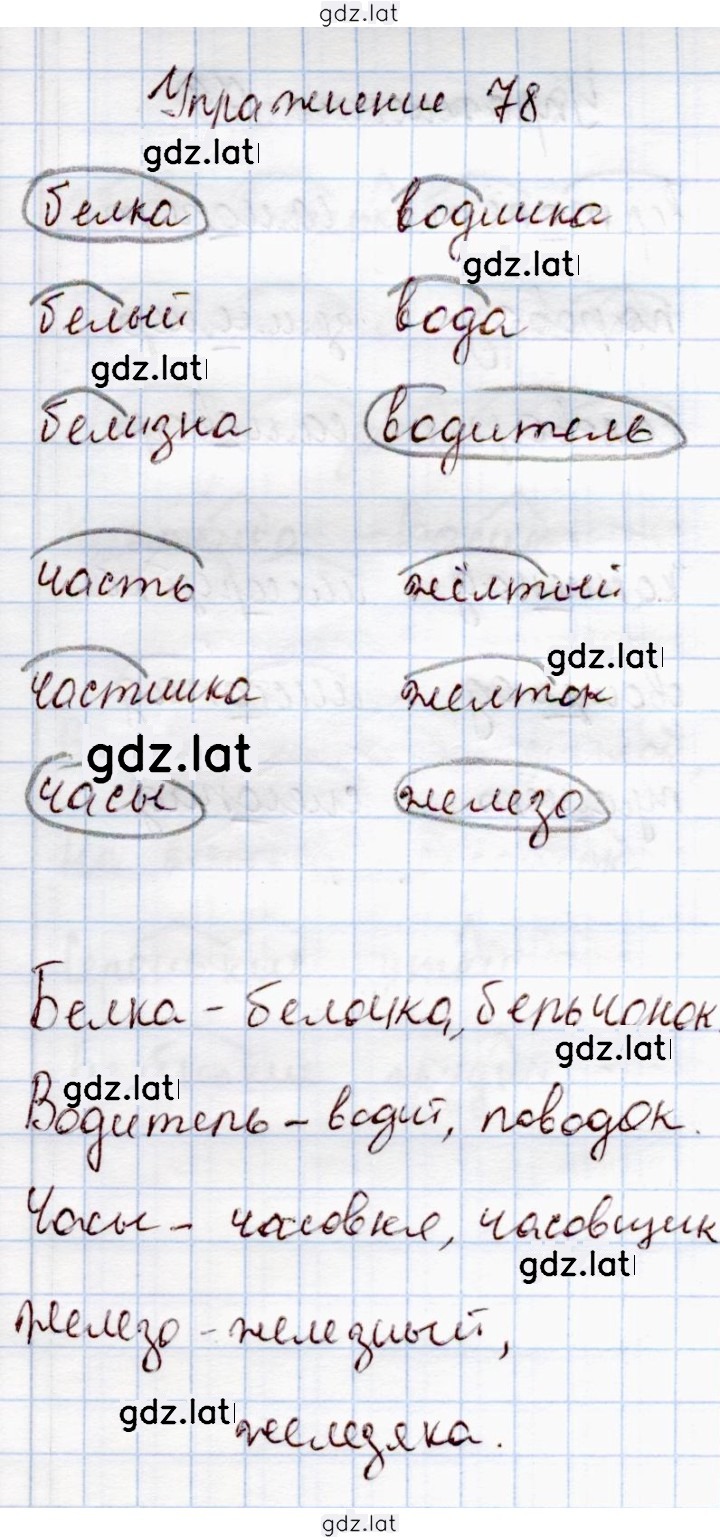 gdz.lat
Упражнение 78
gdz.lat
белка водишка
gdz.lat
белый вода
gdz.lat
белизна водитель
часть жёлтый
gdz.lat
частишка желток
gdz.lat
часы железо
Белка - белочка, бельчонок.
gdz.lat
gdz.lat
Водитель - водит, поводок.
Часы - часовня, часовщик
gdz.lat
Железо - железный,
gdz.lat
железяка.
gdz.lat